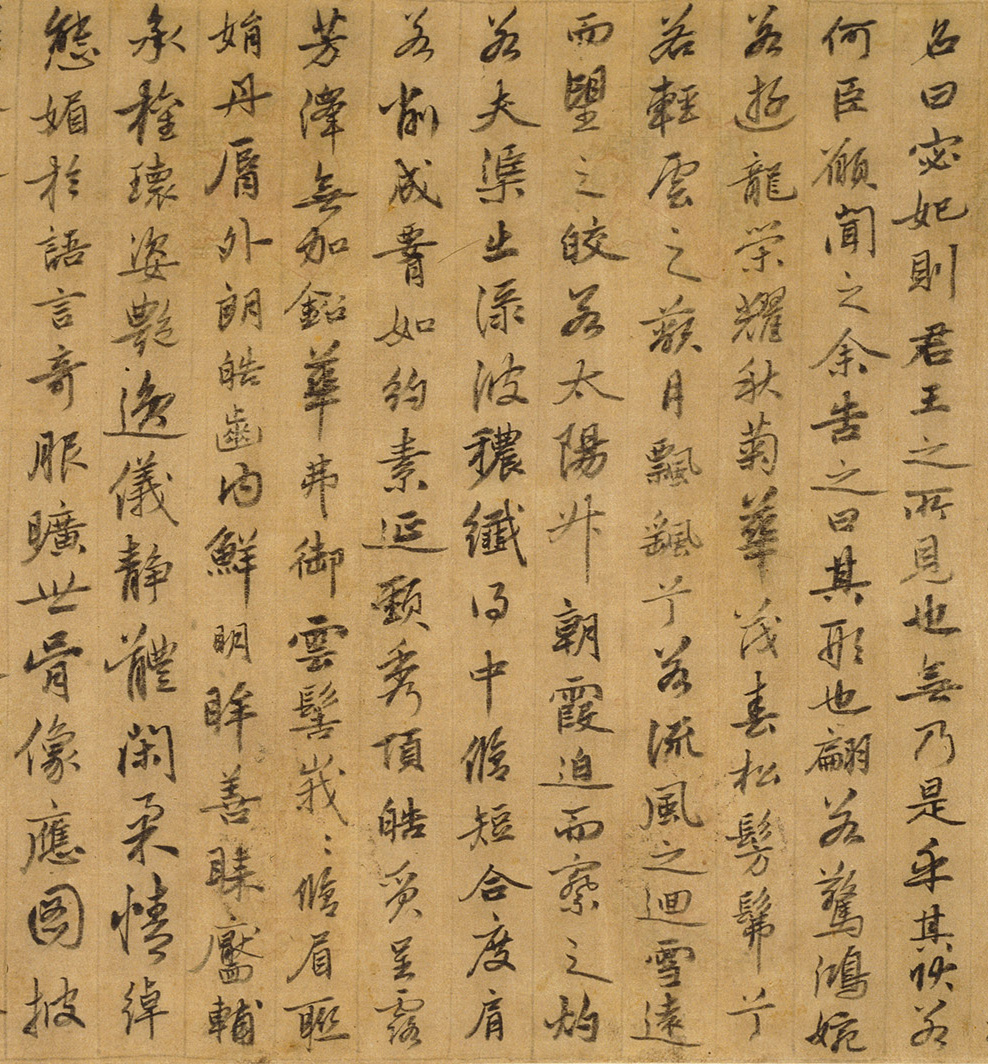 名曰宓妃則君王之所見也無乃是乎其狀若
何臣願聞之余告之曰其形也翩若驚鴻婉
若遊龍榮耀秋菊華茂春松髣髴兮
若輕雲之蔽月飄飖兮若流風之迴雪遠
而望之皎若太陽升朝霞迫而察之灼
若夫渠出淥波穠纖得中脩短合度肩
若削成腰如約素延頸秀項皓質呈露
芳澤無加鉛華弗御雲髻峩〻脩眉聯
娟丹脣外朗皓齒內鮮明眸善睞靨輔
承權瓌姿豔逸儀靜體閑柔情綽
態媚於語言奇服曠世骨像應圖披